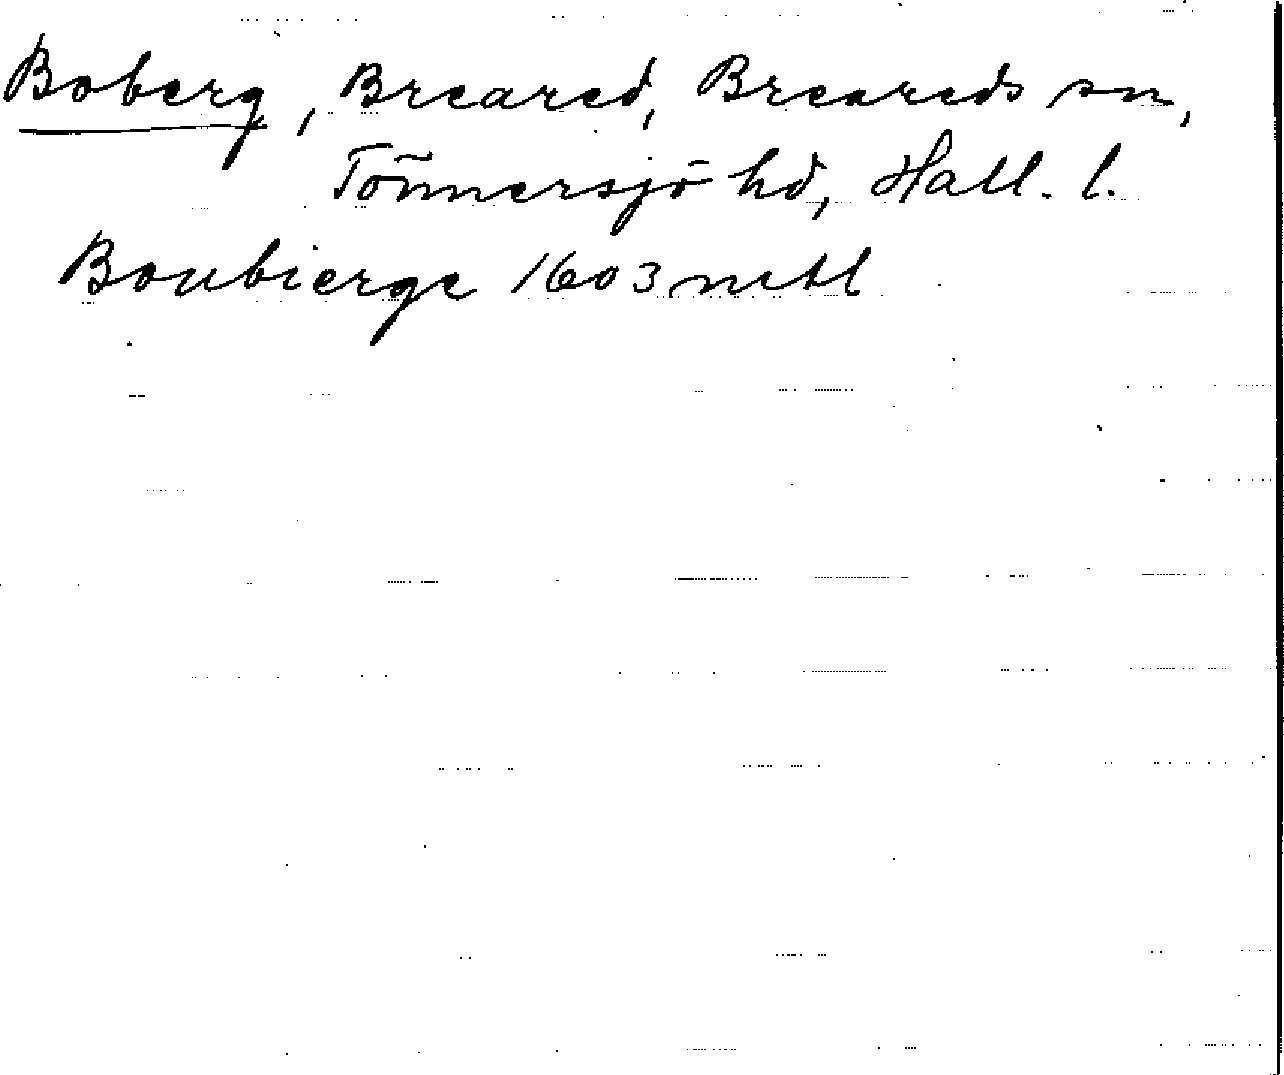 Boberg, Breared, Breareds sn,
Tönnersjö hd, Hall. l.
Boubierge 1603 mtl